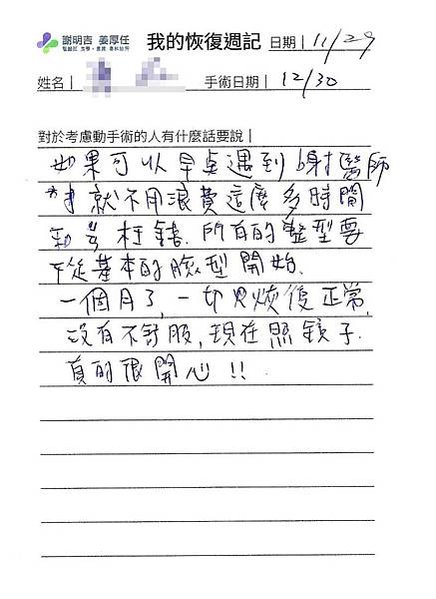 謝明吉 姜厚任
我的恢復週記 日期| 11/29
姓名| 手術日期| 12/30
對於考慮動手術的人有什麼話要說|
如果可以早点遇到謝醫師
才就不用浪費這麼多時間
和 枉錢. 所有的整型要
從基本的臉型開始.
一個月了, 一切已恢復正常,
沒有不舒服, 現在照鏡子.
真的很開心!!